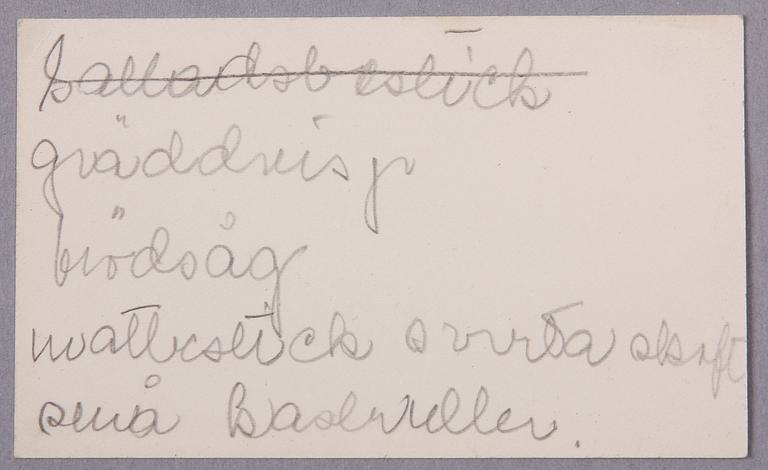 salladsbestick
gräddvisp
brödsåg
matbestick svarta skaft
små Baskeller.